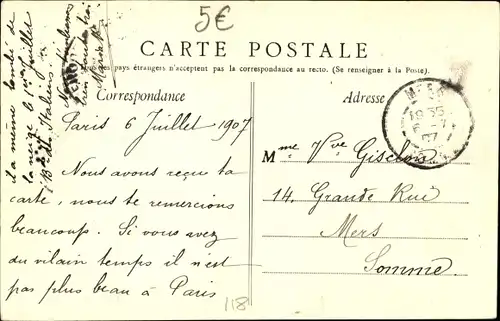 5€
CARTE POSTALE
pays étrangers n'acceptent pas la correspondance au recto. (Se renseigner à la Poste).
Correspondance
Adresse
Paris 6 Juillet 1907
Nous avons reçu ta
carte, nous te remercions
beaucoup. Si vous avez
du vilain temps il n'est
pas plus beau à Paris
il a même tombé de
la neige le 1er Juillet
Bd des Italiens
Mme Vve
14, Grande Rue
Mers
Somme.
118